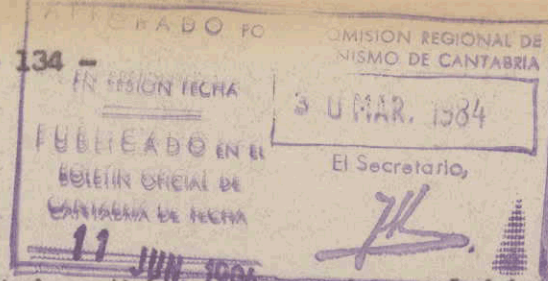 APROBADO PO
OMISION REGIONAL DE
NISMO DE CANTABRIA
134 -
EN SESION FECHA
3 0 MAR. 1984
PUBLICADO EN EL
BOLETIN OFICIAL DE
CANTABRIA DE FECHA
El Secretario,
11 JUN